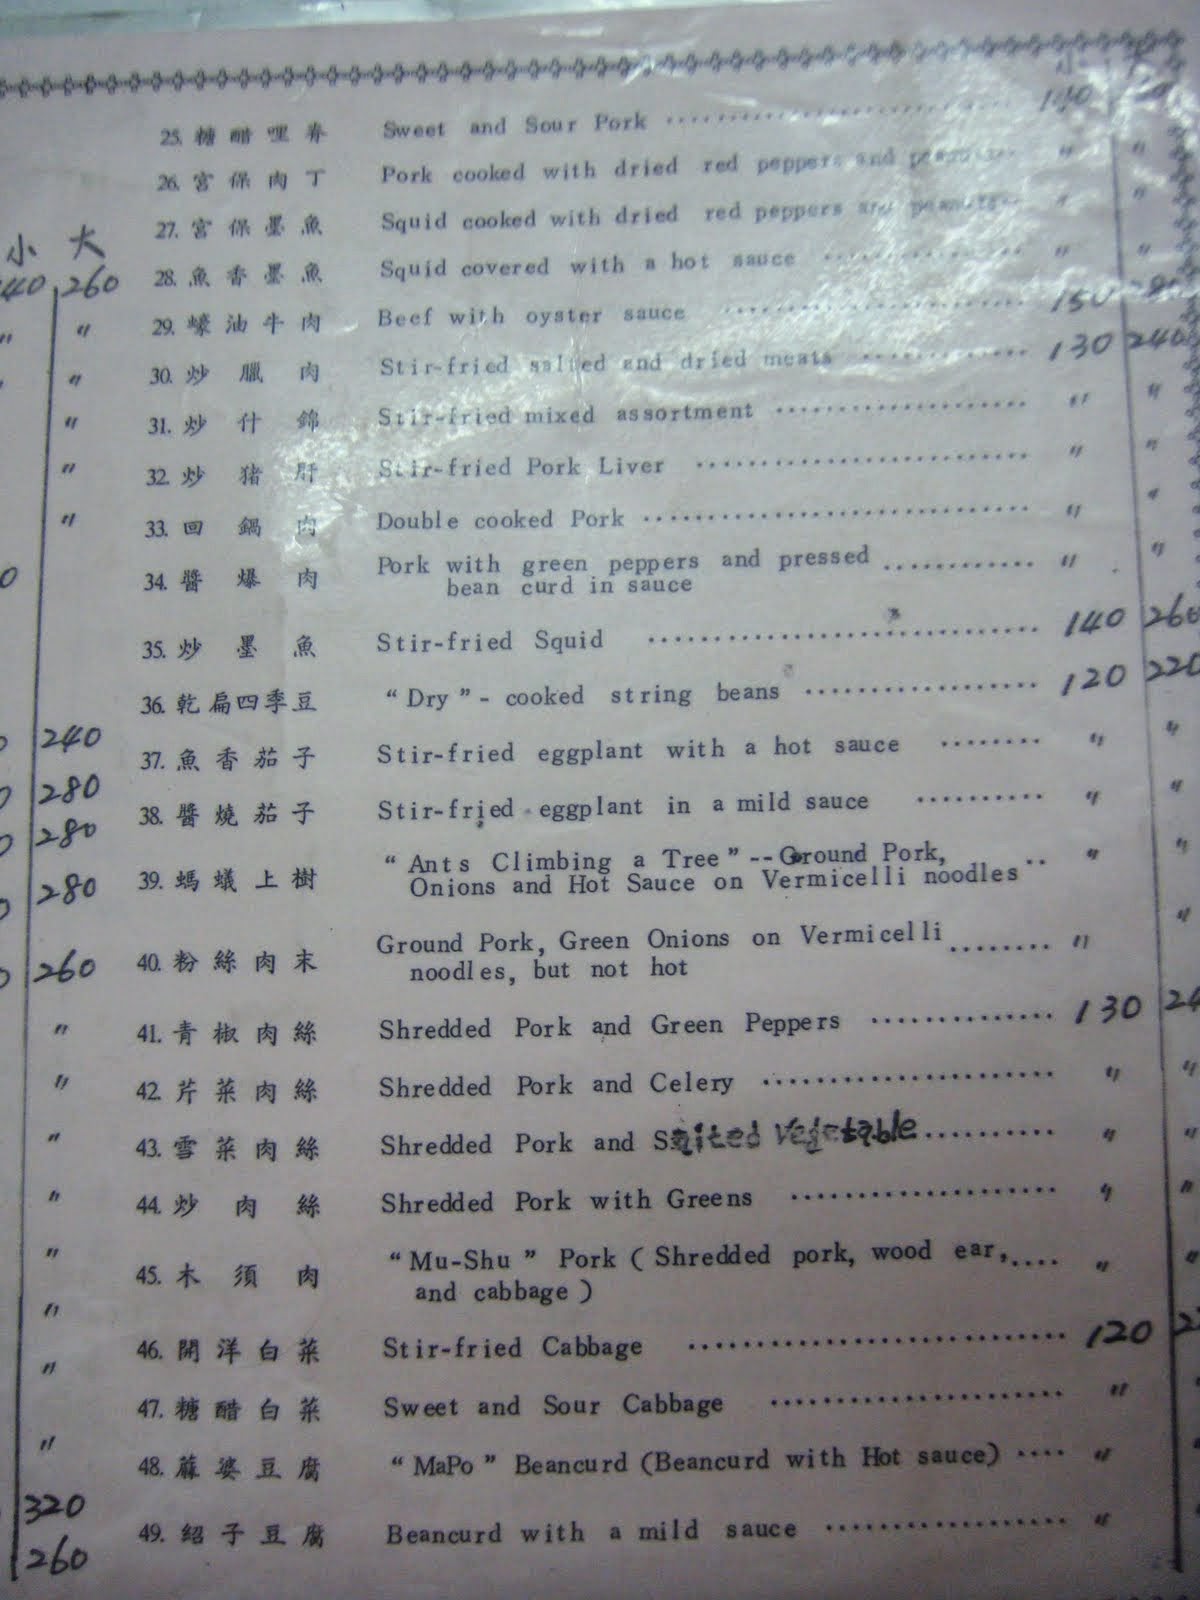 小 大
25. 糖醋哩脊 Sweet and Sour Pork
26. 宮保肉丁 Pork cooked with dried red peppers and peanuts 〃 〃
27. 宮保墨魚 Squid cooked with dried red peppers and peanuts 〃 〃
小 大
260 28. 魚香墨魚 Squid covered with a hot sauce 〃 〃
〃 〃 29. 蠔油牛肉 Beef with oyster sauce 150 280
〃 30. 炒臘肉 Stir-fried salted and dried meats 130 240
〃 31. 炒什錦 Stir-fried mixed assortment 〃 〃
〃 32. 炒猪肝 Stir-fried Pork Liver 〃 〃
〃 33. 回鍋肉 Double cooked Pork 〃 〃
34. 醬爆肉 Pork with green peppers and pressed 〃 〃
bean curd in sauce
35. 炒墨魚 Stir-fried Squid 140 260
36. 乾扁四季豆 “Dry”- cooked string beans 120 220
240 37. 魚香茄子 Stir-fried eggplant with a hot sauce 〃 〃
280
280 38. 醬燒茄子 Stir-fried eggplant in a mild sauce 〃 〃
280 39. 螞蟻上樹 “Ants Climbing a Tree”--Ground Pork, 〃 〃
Onions and Hot Sauce on Vermicelli noodles
260 40. 粉絲肉末 Ground Pork, Green Onions on Vermicelli 〃 〃
noodles, but not hot
〃 41. 青椒肉絲 Shredded Pork and Green Peppers 130 24
〃 42. 芹菜肉絲 Shredded Pork and Celery 〃 〃
〃 43. 雪菜肉絲 Shredded Pork and Salted Vegetable 〃 〃
〃 44. 炒肉絲 Shredded Pork with Greens 〃 〃
〃 45. 木須肉 “Mu-Shu” Pork (Shredded pork, wood ear, 〃 〃
and cabbage)
〃
〃 46. 開洋白菜 Stir-fried Cabbage 120 22
〃 47. 糖醋白菜 Sweet and Sour Cabbage 〃
48. 蔴婆豆腐 “MaPo” Beancurd (Beancurd with Hot sauce) 〃
320
260 49. 紹子豆腐 Beancurd with a mild sauce 〃